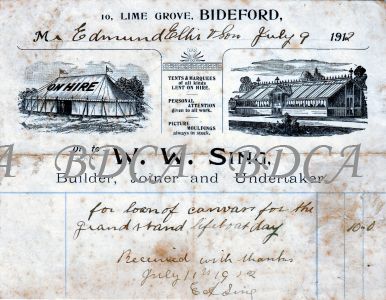 10, LIME GROVE, BIDEFORD,
Mr Edmund Ellis & Son July 9 1912
ON HIRE
TENTS & MARQUEES
of all kinds
LENT ON HIRE.
PERSONAL
ATTENTION
given to all work.
PICTURE
MOULDINGS
always in stock.
Dr. to
W. W. SING,
BDCA BDCA BDCA
Builder, Joiner and Undertaker.
for loan of canvass for the
grand stand lifeboat day 10-0
Received with thanks
July 11th 1912
Sing